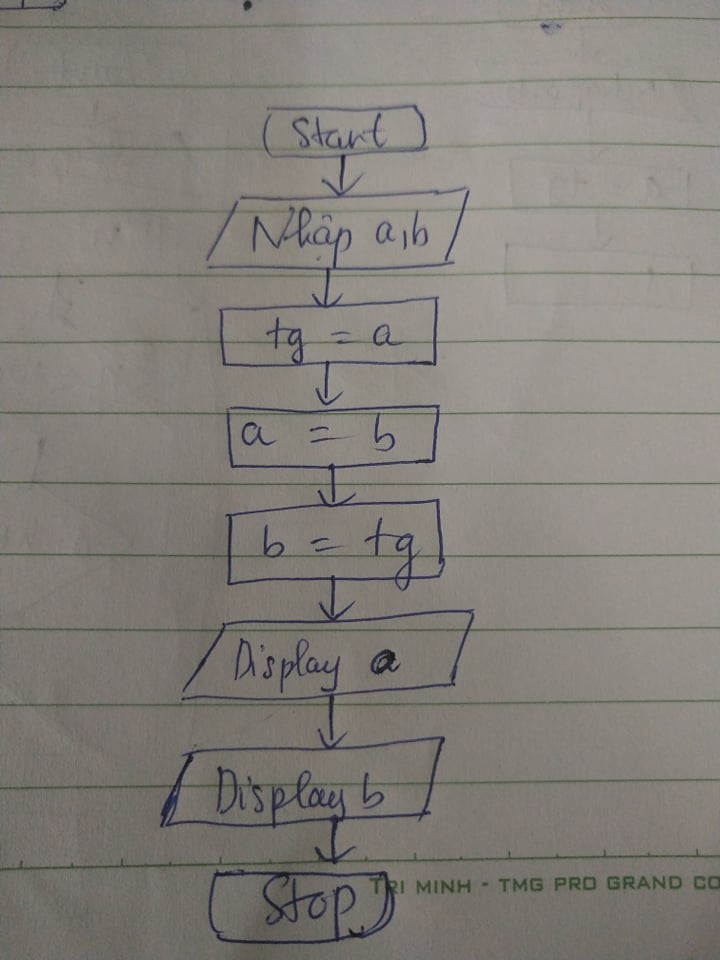 Start
Nhập a,b
tg = a
a = b
b = tg
Display a
Display b
Stop
TRI MINH - TMG PRO GRAND CO